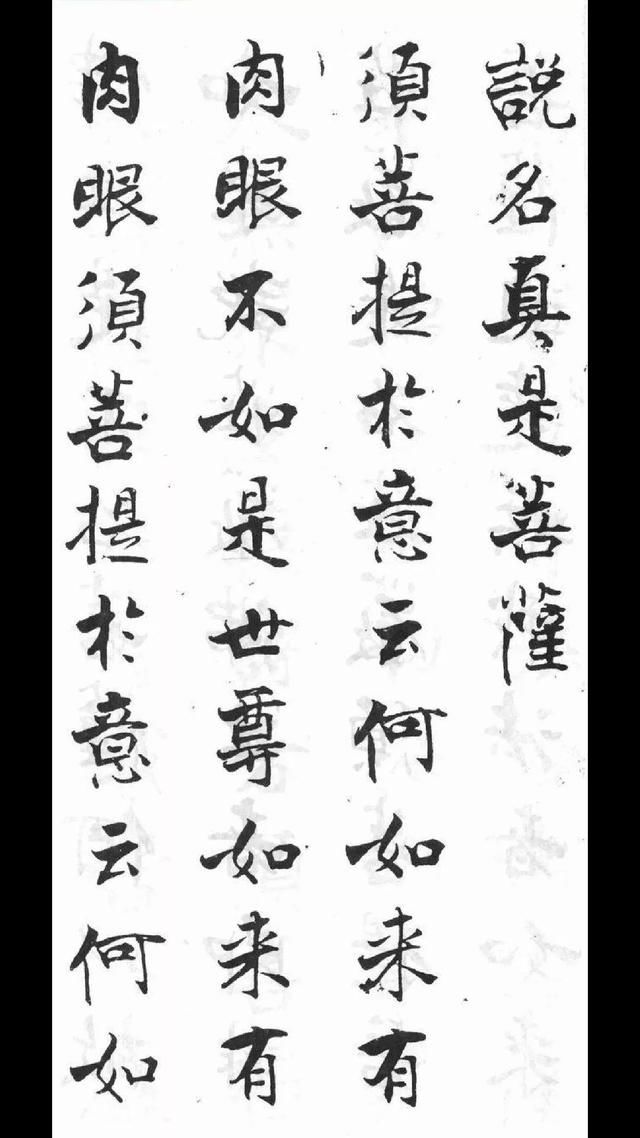 説名真是菩薩
須菩提於意云何如来有
肉眼不如是世尊如来有
肉眼須菩提於意云何如